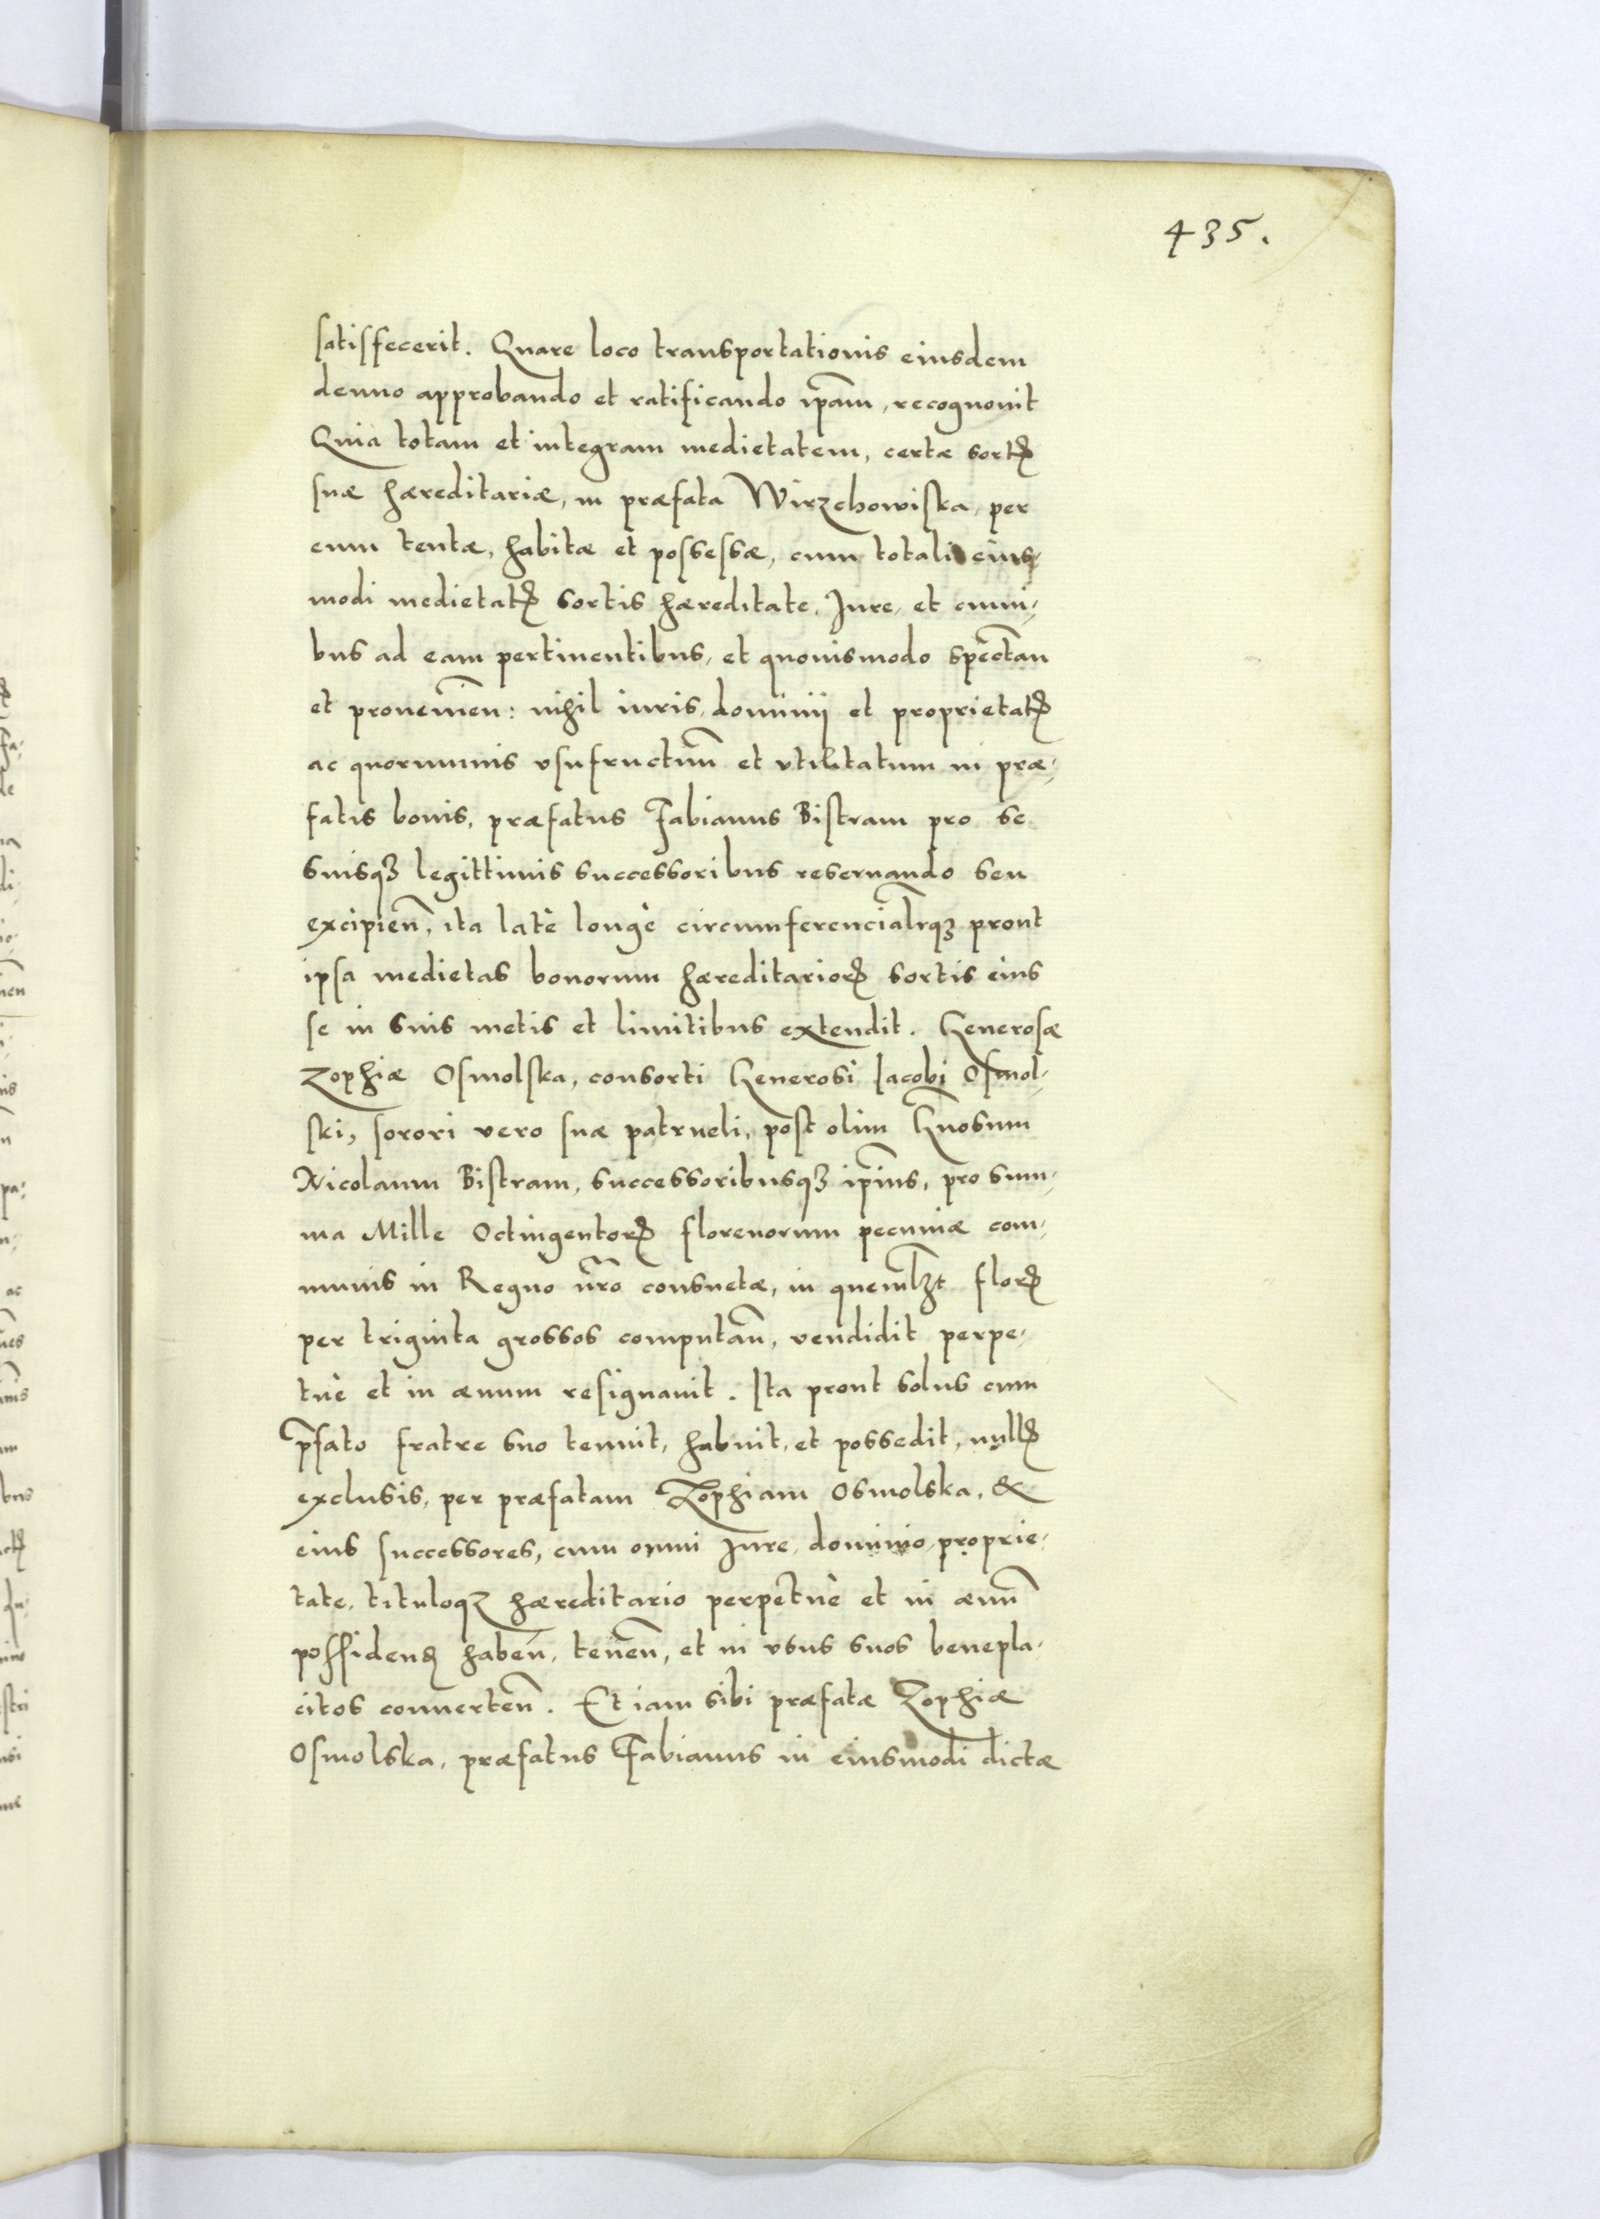 435.
satisfecerit. Quare loco transportationis eiusdem
denuo approbando et ratificando ip̃am, recognouit
Quia totam et integram medietatem, certæ sortꝭ
suæ hæreditariæ, in præfata Wirzchowiska, per
eum tentæ, habitæ et possessæ, cum totali eius¬
modi medietatꝭ sortis hæreditate, Jure, et omni¬
bus ad eam pertinentibus, et quouismodo spectan̄
et prouenien̄: nihil iuris, dominij et proprietatꝭ
ac quorumuis vsufructuū et vtilitatum in præ¬
fatis bonis, præfatus Fabianus Bistram pro se
suisqꝫ legittimis successoribus reseruando seu
excipien̄, ita latè longè circumferencialr̃qꝫ prout
ipsa medietas bonorum hæreditarioꝝ sortis eius
se in suis metis et limitibus extendit. Generosæ
Zophiæ Osmolska, consorti Generosi Iacobi Osmol¬
ski, sorori vero suæ patrueli, post olim Gn̄osum
Nicolaum Bistram, successoribusqꝫ ip̃ius, pro sum¬
ma Mille Octingentoꝝ florenorum pecuniæ com¬
munis in Regno nr̃o consuetæ, in quemlꝫt floꝝ
per triginta grossos computan̄, vendidit perpe¬
tuè et in æuum resignauit. Ita prout solus cum
p̃fato fratre suo tenuit, habuit, et possedit, nullꝭ
exclusis, per præfatam Zophiam Osmolska, &
eius successores, cum omni Jure, dominio, proprie¬
tate, tituloqꝫ hæreditario perpetuè et in æuū
possidenꝭ haben̄, tenen̄, et in vsus suos benepla¬
citos conuerten̄. Et iam sibi præfatæ Zophiæ
Osmolska, præfatus Fabianus in eiusmodi dictæ